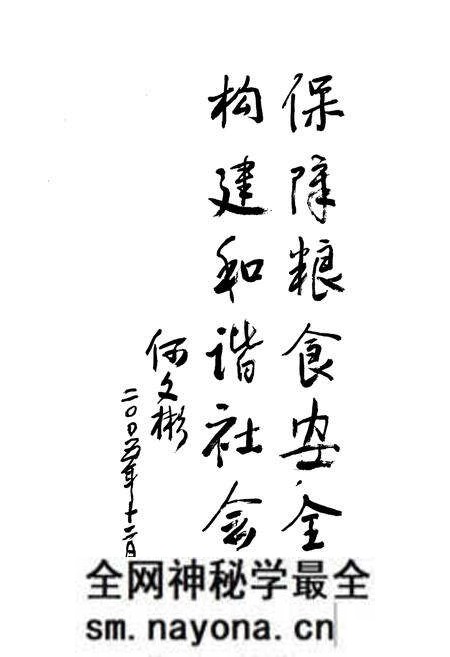 保障粮食安全
构建和谐社会
何文彬
二〇〇五年十二月
全网神秘学最全
sm.nayona.cn